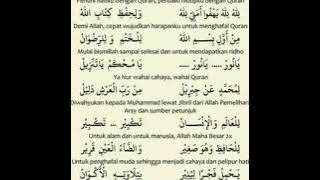 Penuhi hatiku dengan Quran, perbaiki hidupku dengan Quran
لِلَّهِ لِلَّهِ يَهْفُوا أَمَلِي لِلَّهِ وَلِحِفْظِ كِتَابِ اللَّهِ
Demi Allah, cepat wujudkan harapanku untuk menghafal Quran
مِنْ أَوَّلِ بِسْمِ اللَّهِ لِلْخَتْمِ وَ لِلرِّضْوَانْ
Mulai bismillah sampai selesai dan untuk mendapatkan ridho
يَا نُورْ ..... يَانُورْ ..... يَا مُحْكَمُ يَاتَنْزِيلْ
Ya Nur wahai cahaya, wahai Quran
لِمُحَمَّدٍ عَنْ جِبْرِيلْ مِنْ رَبِّ الْعَرْشِ دَلِيْلْ
Diwahyukan kepada Muhammad lewat Jibril dari Allah Pemelihara
Arsy dan sumber petunjuk
لِلْعَالَمِ وَالْإِنْسَانْ تَكْبِيرْ ... تَكْبِيرْ
Untuk alam dan untuk manusia, Allah Maha Besar 2x
لِلْحَافِظِ وَهُوَ صَغِيرْ وَالضَّاءُ الْعَيْنِ قَرِيرْ
Untuk penghafal muda sehingga menjadi cahaya dan pelipur hati
يَحْمِلُ فَجْرًا لِلْبَشَرِ بِتِلَاوَتِهِ الْأَكْوَانْ